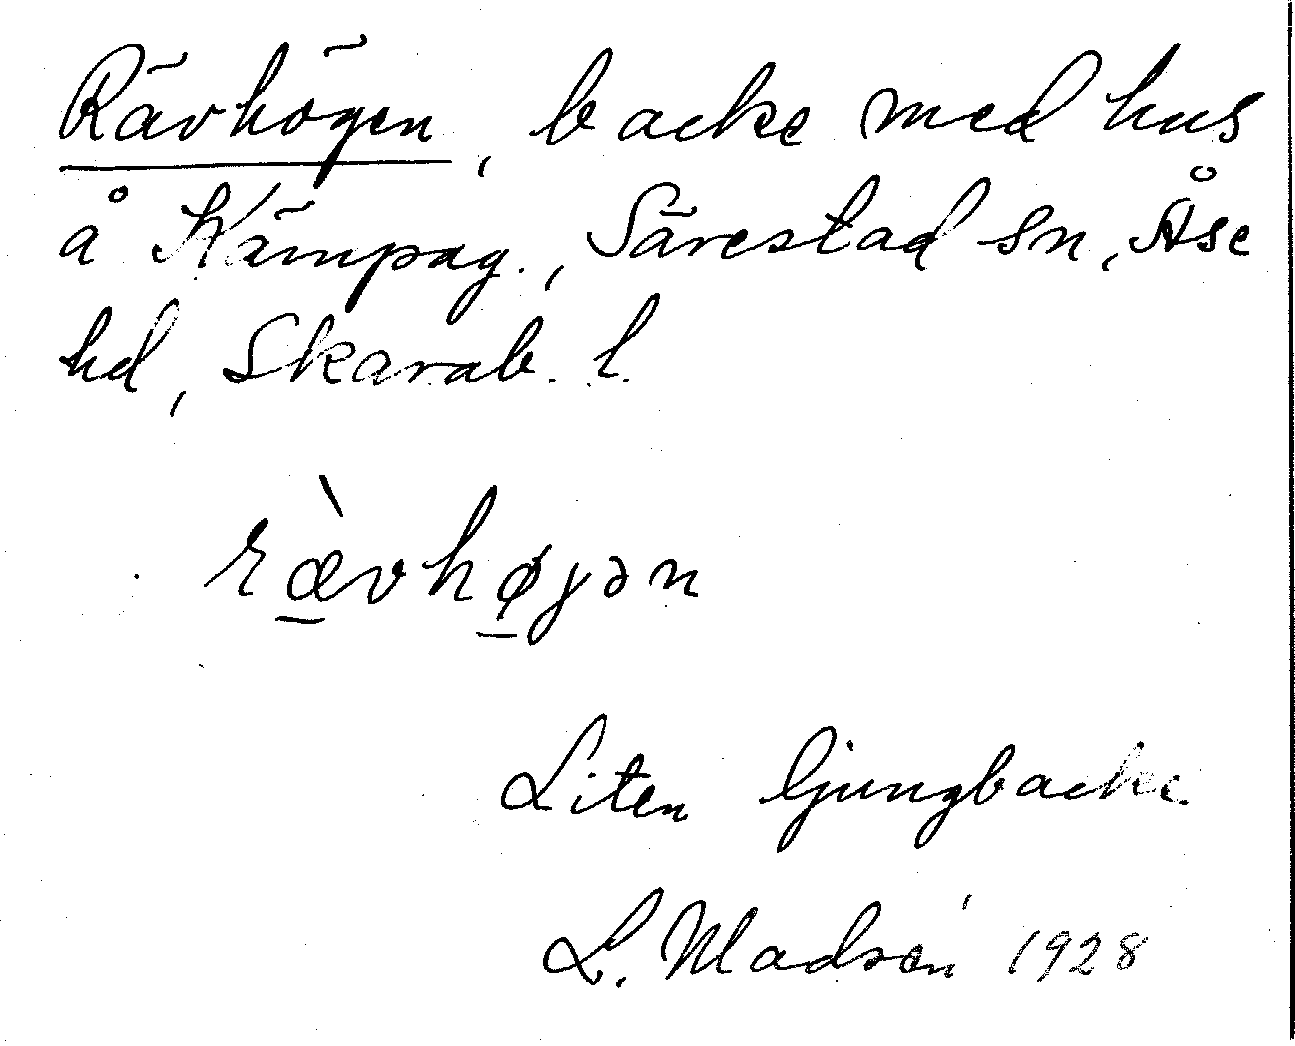 Rävhögen, backe med hus
å Kämpag., Särestad sn, Åse
hd, Skarab. l.
rævhøjən
Liten ljungbacke
L. Madsén 1928